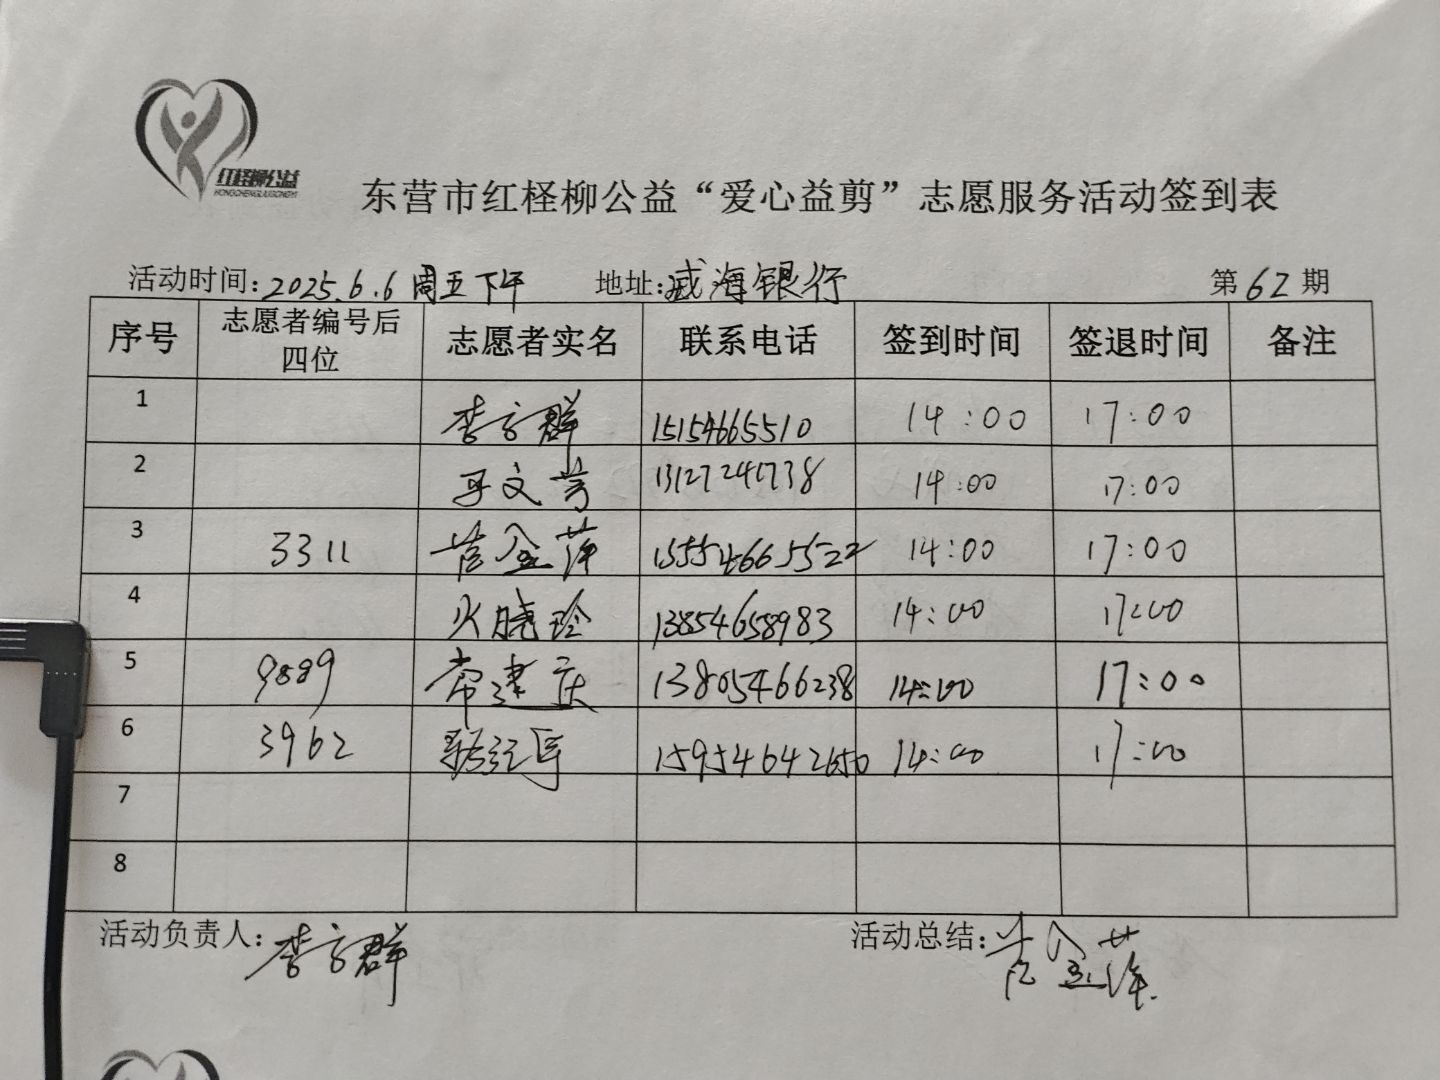 红柽柳公益
HONGCHENGLIUGONGYI
东营市红柽柳公益“爱心益剪”志愿服务活动签到表
活动时间：2025.6.6 周五下午 地址：威海银行 第62期
序号 志愿者编号后四位 志愿者实名 联系电话 签到时间 签退时间 备注
1 李方群 15154665510 14:00 17:00
2 文芳 13127241738 14:00 17:00
3 3311 金萍 15554665522 14:00 17:00
4 晓玲 13854658983 14:00 17:00
5 9889 常建庆 13805466238 14:00 17:00
6 3962 15954642650 14:00 17:00
7
8
活动负责人：李方群 活动总结：金萍